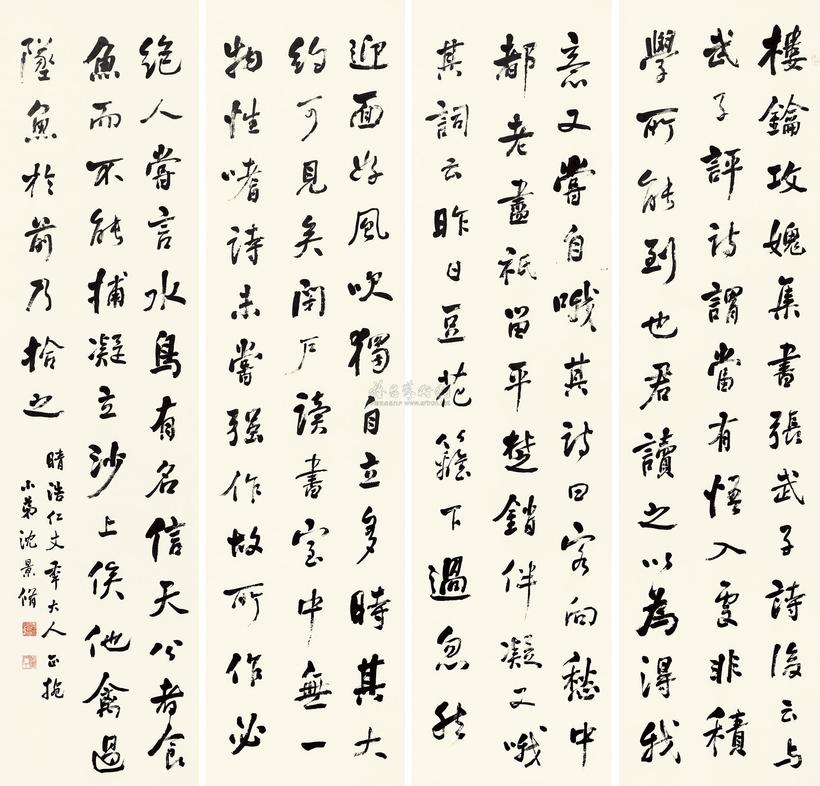 樓鑰攻媿集書張武子詩後云與
武子評詩謂當有悟入處非積
學所能到也君讀之以為得我
意又嘗自哦其詩曰客向愁中
都老盡衹留平楚銷伴凝又哦
其詞云昨日豆花籬下過忽然
迎面好風吹獨自立多時其大
約可見矣閉戶讀書室中無一
物性嗜詩未嘗強作故所作必
絕人嘗言水鳥有名信天公者食
魚而不能捕凝立沙上俟他禽過
墜魚於前乃拾之
晴浩仁丈大人正
小弟沈景脩